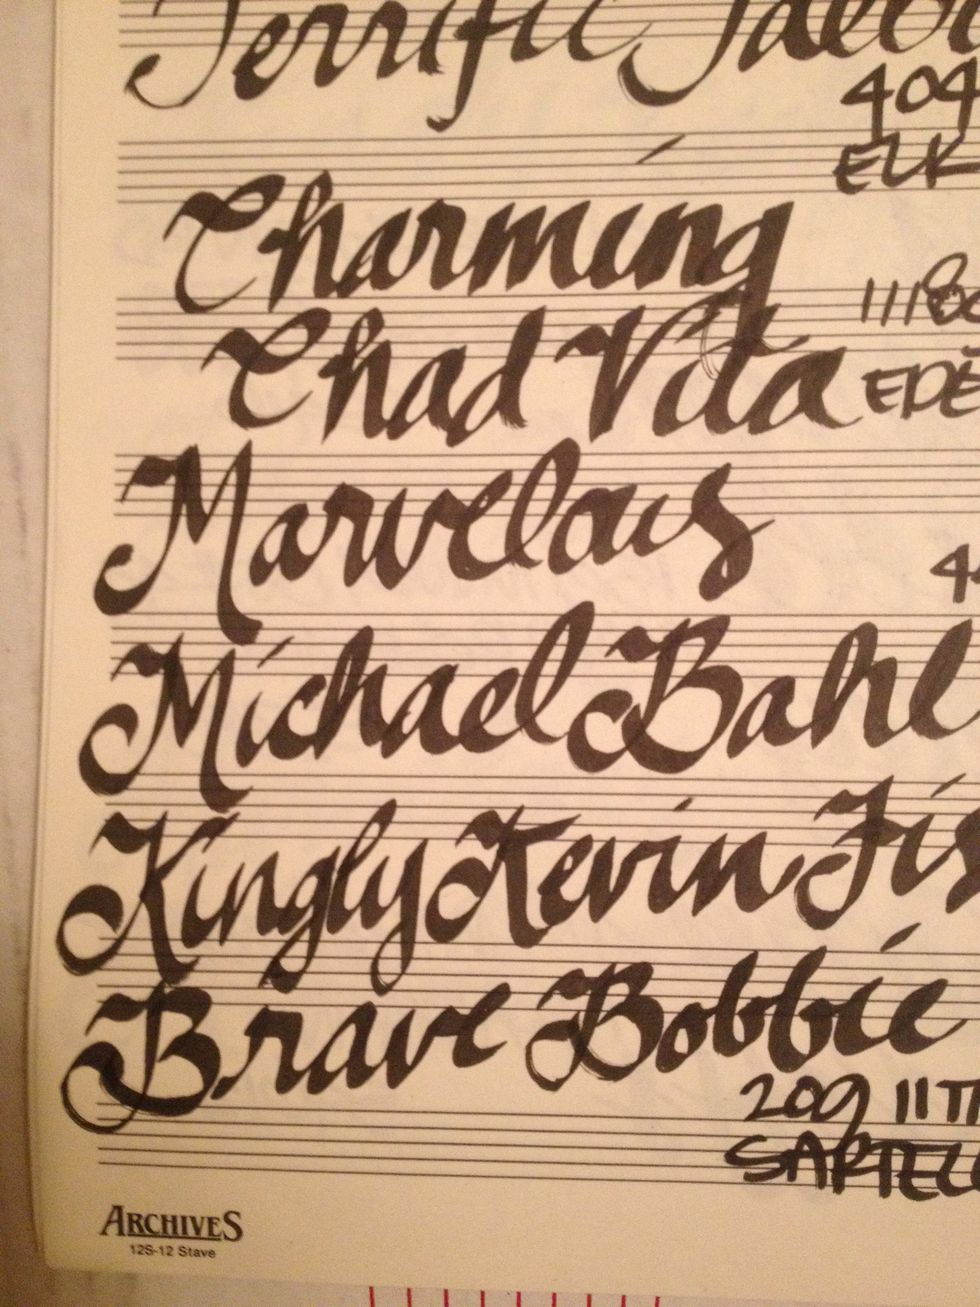 Terrific Jacob
404
ELK
Charming
1118
Chad Vita
EDE
Marvelous
Michael Bahl
Kingly Kevin Fis
Brave Bobbie
209 11TH
SARTELL
ARCHIVES
12S-12 Stave